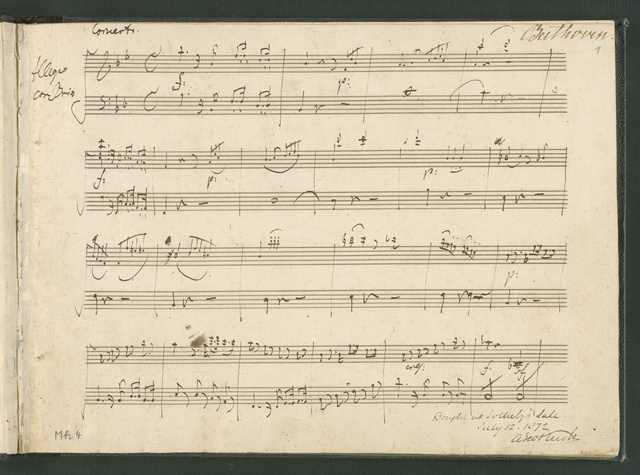 Concerto.
Beethoven.
1
Allegro
con Brio
f:
p:
f:
p:
p:
p:
cresc:
f:
Bought at Sotheby's Sale
July 12. 1872
MH 4